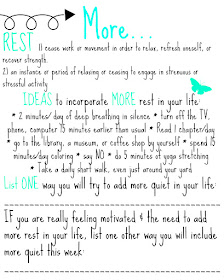 More...
REST 1) cease work or movement in order to relax, refresh oneself, or
recover strength.
2) an instance or period of relaxing or ceasing to engage in strenuous or
stressful activity.
IDEAS to incorporate MORE rest in your life:
* 2 minutes/ day of deep breathing in silence * turn off the TV,
phone, computer 15 minutes earlier than usual * Read 1 chapter/day
* go to the library, a museum, or coffee shop by yourself * spend 15
minutes/day coloring * say NO * do 5 minutes of yoga stretching
* Take a daily short walk, even just around your yard
List ONE way you will try to add more quiet in your life:
IF you are really feeling motivated & the need to add
more rest in your life, list one other way you will include
more quiet this week: